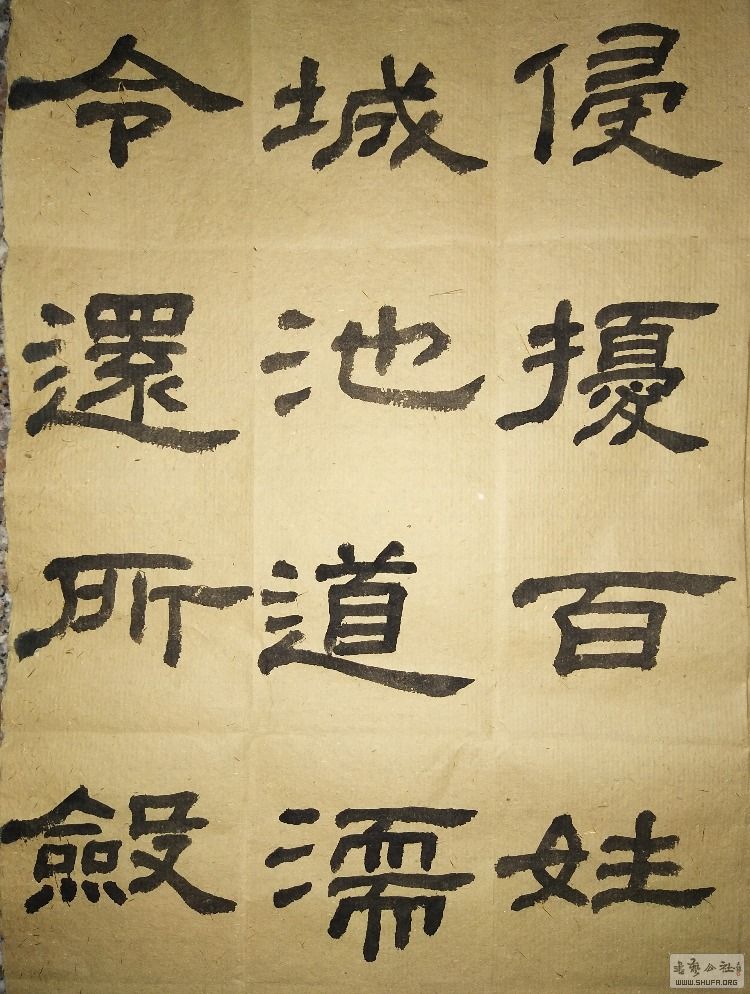 侵擾百姓
城池道濡
令還所斂
書藝公社
WWW.SHUFA.ORG